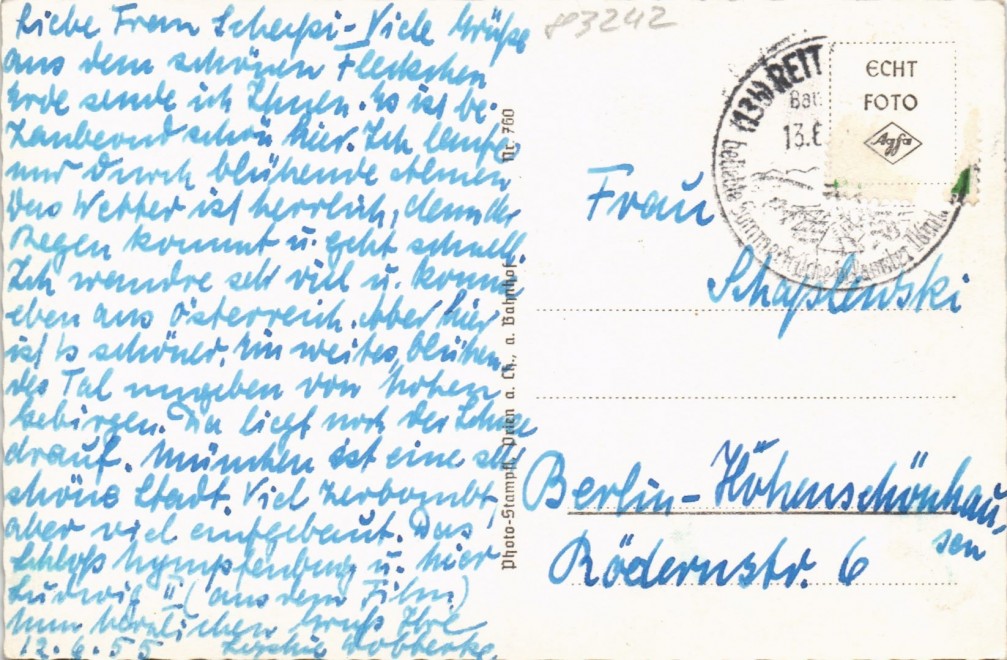 Liebe Frau Schepsi - Viele Grüße
aus dem schönen Fleckchen
Erde sende ich Ihnen. Es ist be-
zaubernd schön hier. Ich laufe
nur durch blühende Almen
Das Wetter ist herrlich, denn der
Regen kommt u. geht schnell.
Ich wandre sehr viel u. komme
eben aus Österreich. Aber hier
ist es schöner. Ein weites, blühen-
des Tal umgeben von hohen
Gebirgen. Da liegt noch der Schnee
drauf. München ist eine sehr
schöne Stadt. Viel zerbombt,
aber viel aufgebaut. Das
Schloß Nymphenburg u. hier
Ludwig II (aus dem Film)
Nun herzlichen Gruß Ihre
12.6.55
Photo-Stampfl, Prien a. Ch., a. Bahnhof Nr. 760
83242
(13b) REIT
13.6
beliebte Sommerfrische
ECHT
FOTO
Agfa
Frau
Schaplewski
Berlin-Höhenschönhau-
sen
Rödernstr. 6